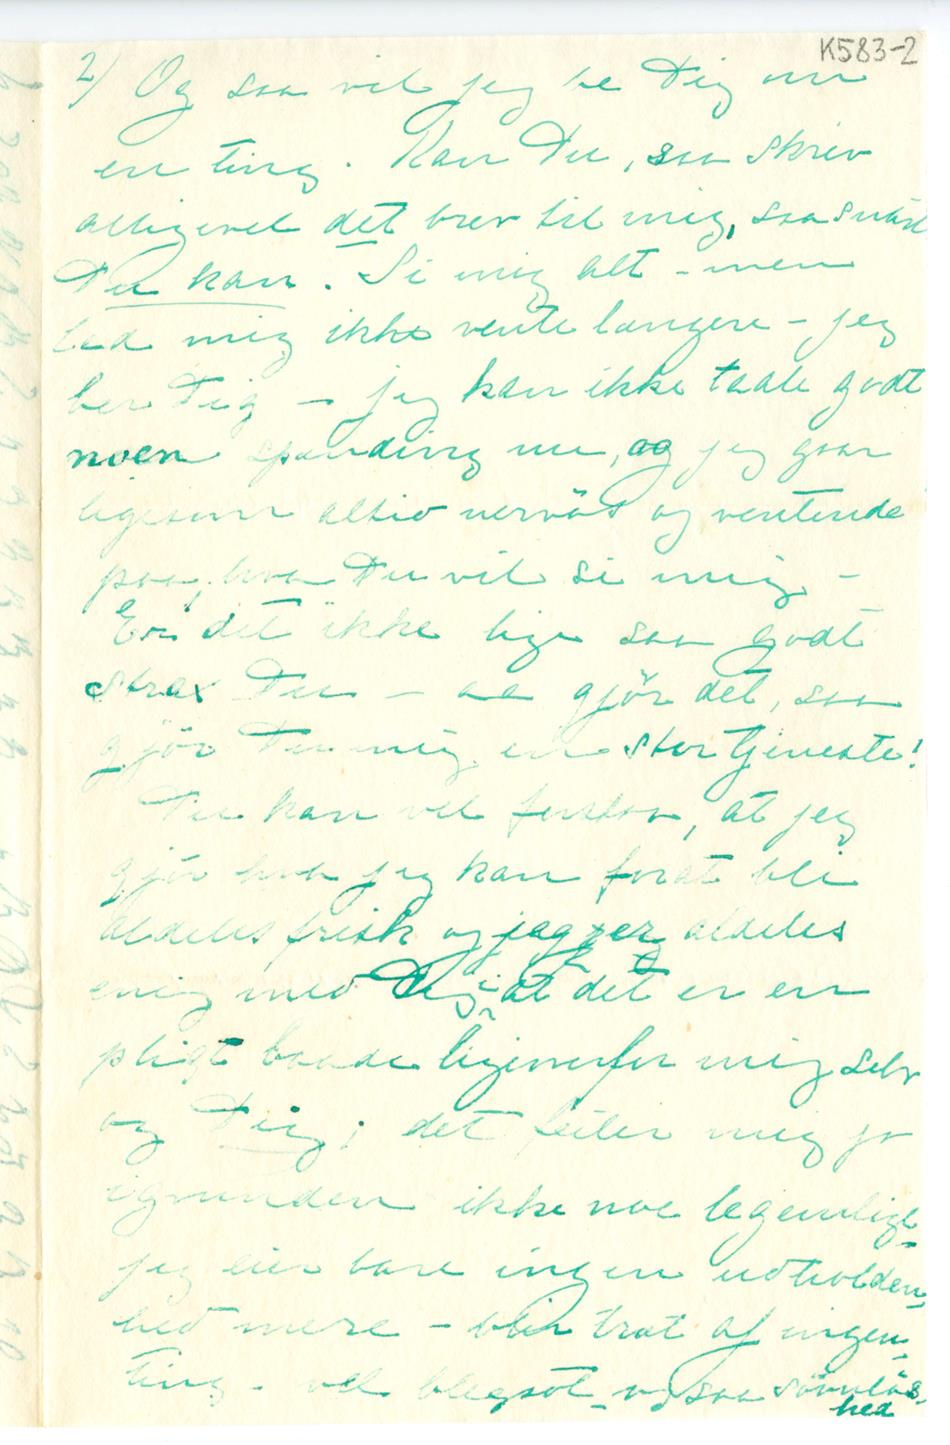 K583-2
2) Og saa vil jeg be Dig om
en ting. Kan Du, saa skriv
alligevel det brev til mig, saa snart
Du kan. Si mig alt - men
lad mig ikke vente længere - jeg
ber Dig - jeg kan ikke taale godt
noen spænding nu, og jeg gaar
ligesom altid nervös og ventende
paa, hva Du vil si mig -
Er det ikke lige saa godt
strax Du - aa gjör det, saa
gjör Du mig en stor tjeneste!
Du kan vel forstaa, at jeg
gjör hva jeg kan forat bli
aldeles frisk og jeg er aldeles
enig med Dig i at det er en
pligt baade ligeoverfor mig selv
og Dig; det feiler mig jo
igrunden ikke noe legemligt -
jeg eier bare ingen udholden-
hed mere - blir træt af ingen-
ting - vel blegsot - og saa sövnlös-
hed